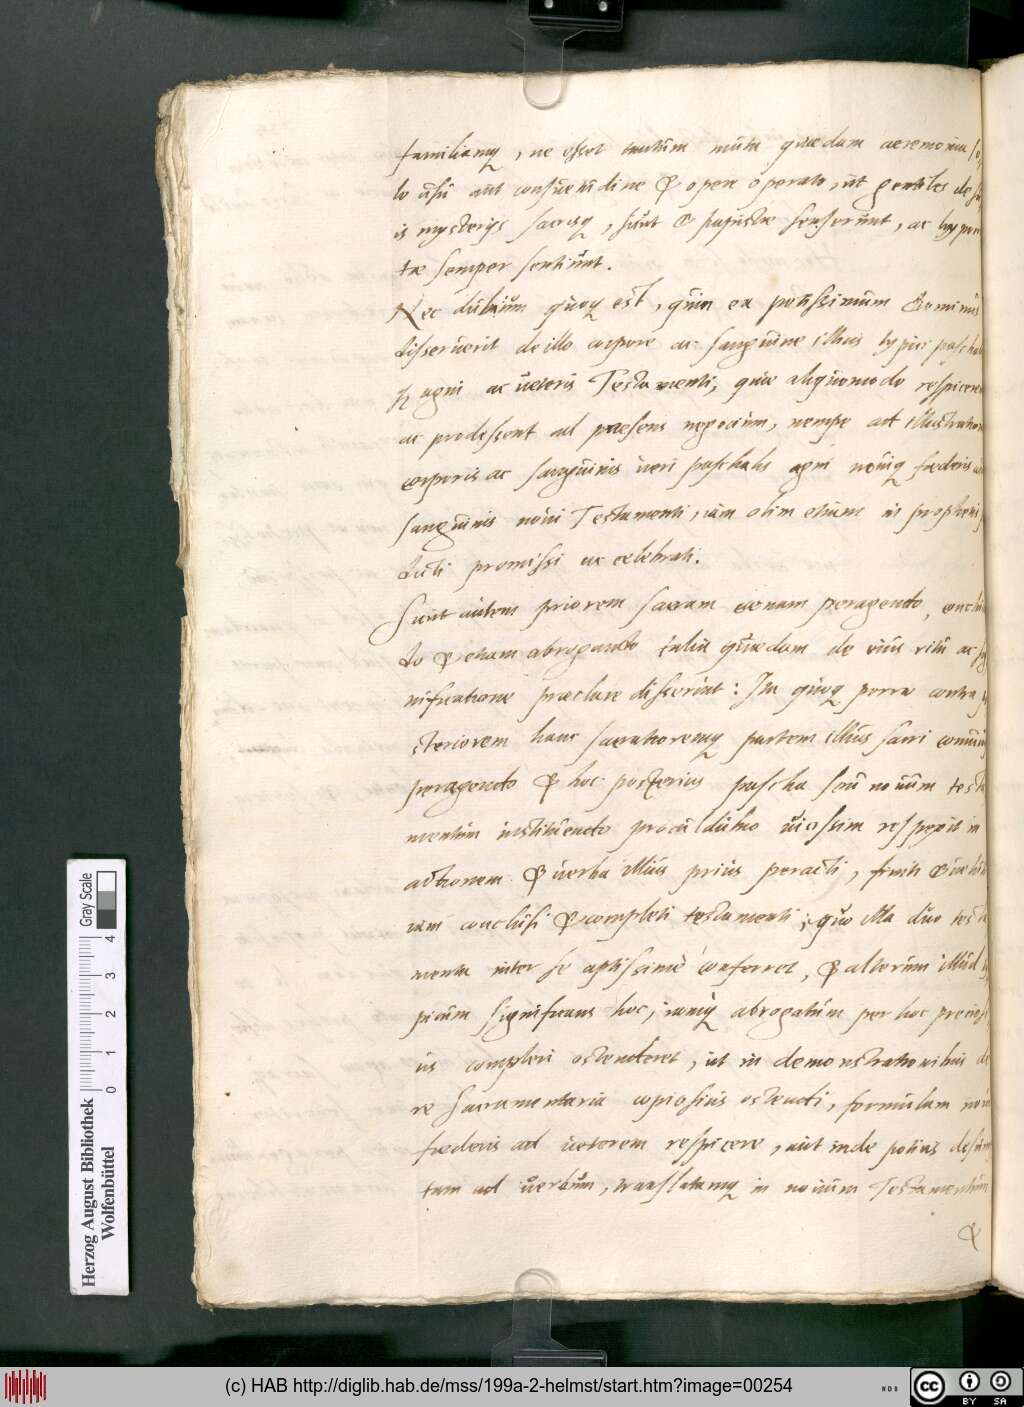 familiamq, ne esset tantùm muta quaedam caeremonia so
lo usu aut consuetudine & opere operato, ut gentiles de su
is mysterijs sacrisq, sicut & papistae senserunt, ac hypocri
tae semper sentiunt.
Nec dubium quoq est, quin ea potissimùm Dominus
disseruerit de illo corpore ac sanguine illius typici paschalis
agni ac ueteris Testamenti, quae aliquomodo respicerent
ac prodessent ad praesens negocium, nempe ad illustrationem
corporis ac sanguinis ueri paschalis agni nouiq foederis
sanguinis noui Testamenti, iam olim etiam in prophetijs
dicti promissi ac celebrati.
Sicut autem priorem sacram coenam peragendo, conclu
do & etiam abrogando talia quaedam de eius ritu ac sig
nificatione praeclare disserunt: Ita quoq porro contra po
steriorem hanc sacratioremq partem illius sacri conuiuij
peragendo & hoc posterius pascha seu nouum testa
mentum instituendo procul dubio uicissim respexit in
actionem & uerba illius prius peracti, finiti &
iam conclusi & completi testamenti, quo illa duo testa
menta inter se aptissimè conferret, & alterum illud ty
picum significans hoc, iamq abrogatum per hoc preciosi
us compleri ostenderet, ut in demonstrationibus de
re Sacramentaria copiosius ostendi, formulam noui
foederis ad ueterem respicere, aut inde potius desum
tam ad uerbum, translatamq in nouum Testamentum
&
Herzog August Bibliothek
Wolfenbüttel
0 1 2 3 4
Gray Scale
(c) HAB http://diglib.hab.de/mss/199a-2-helmst/start.htm?image=00254
cc BY SA